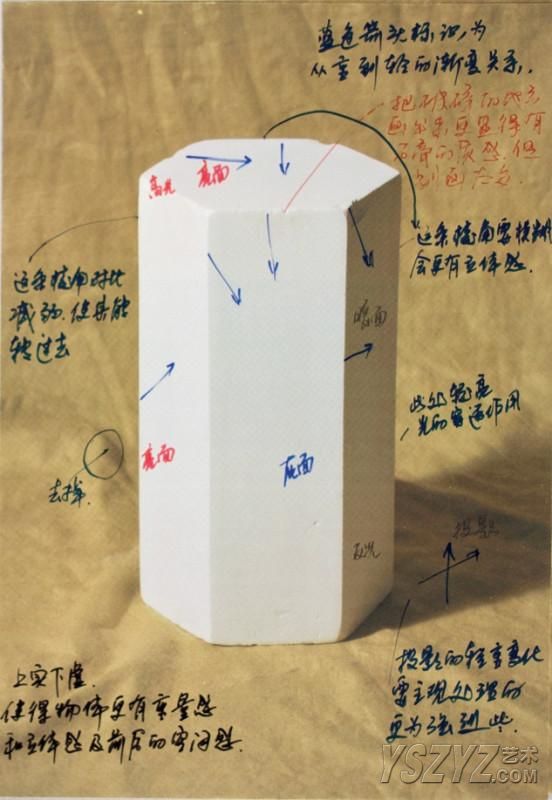 蓝色箭头标识,为
从重到轻的渐变关系.
把破碎的地方
画出来更显得有
石膏的质感.但
别画太过
高光
亮面
这条棱角要模糊
会更有立体感.
这条棱角对比
减弱.使其能
转过去
暗面
此处轻亮
光的穿透作用
亮面
灰面
去掉.
投影
反光
投影的轻重变化
要主观处理的
更为强烈些.
上实下虚.
使得物体更有重量感
和立体感及前后的空间感.
YSZYZ艺术
.COM